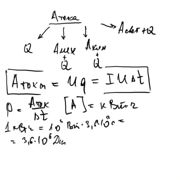 Aтока
Q Aмех Aхим Aсвет+Q
Q Q
Aтока = Uq = IUΔt
P = Aток/Δt [A] = кВт·ч
1 кВт·ч = 10³ Вт · 3,6·10³ с =
= 3,6·10⁶ Дж